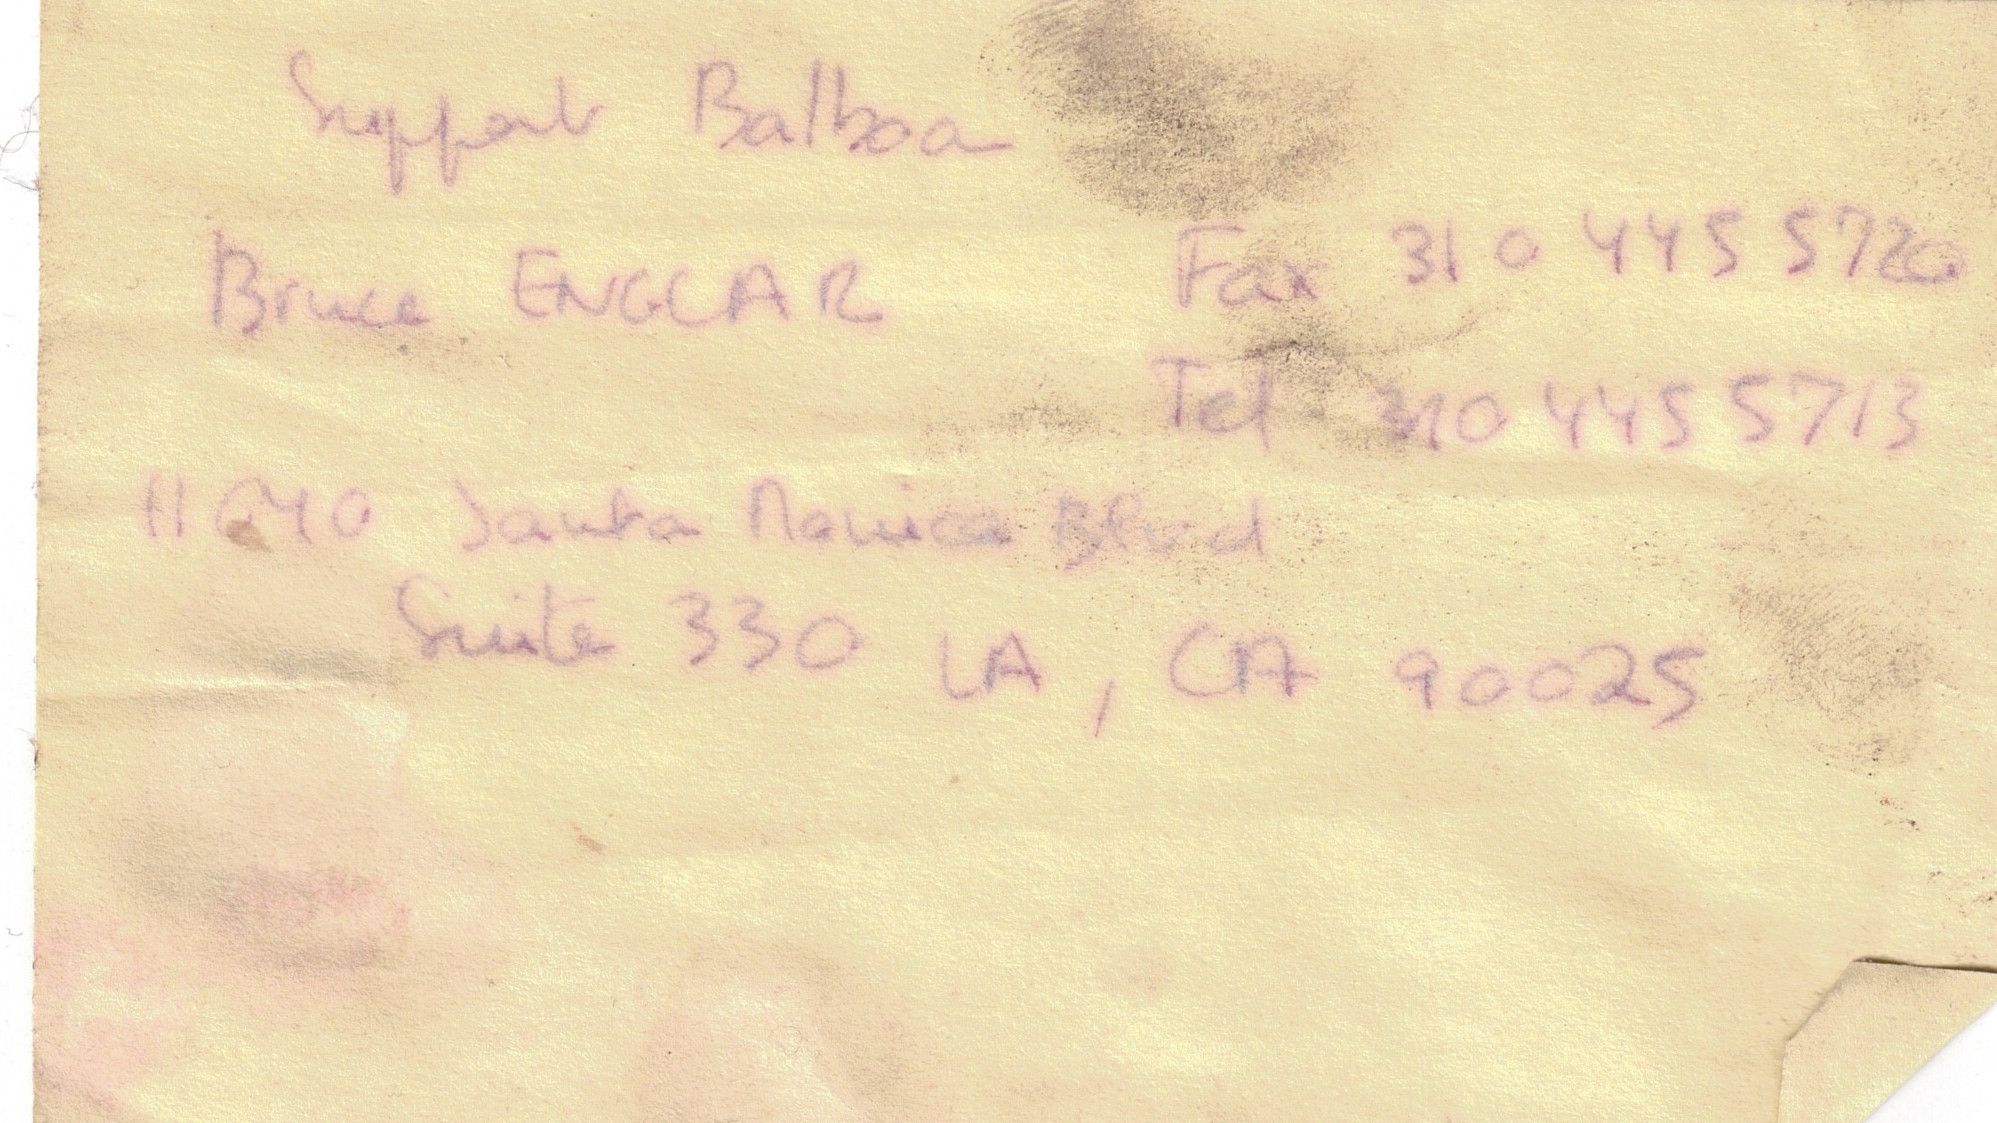 Support Balboa
Bruce ENGLAR
Fax 310 445 5720
Tel 310 445 5713
11 640 Santa Monica Blvd
Suite 330 LA, CA 90025